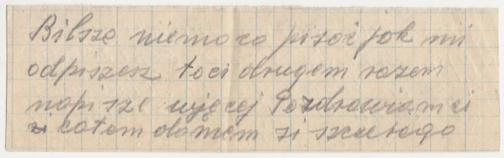 Bilsze niemo co pisać jak mi
odpiszesz toci drugem razem
napisze wjęcej Pozdrawiam ci
z całem domem zi szczerego